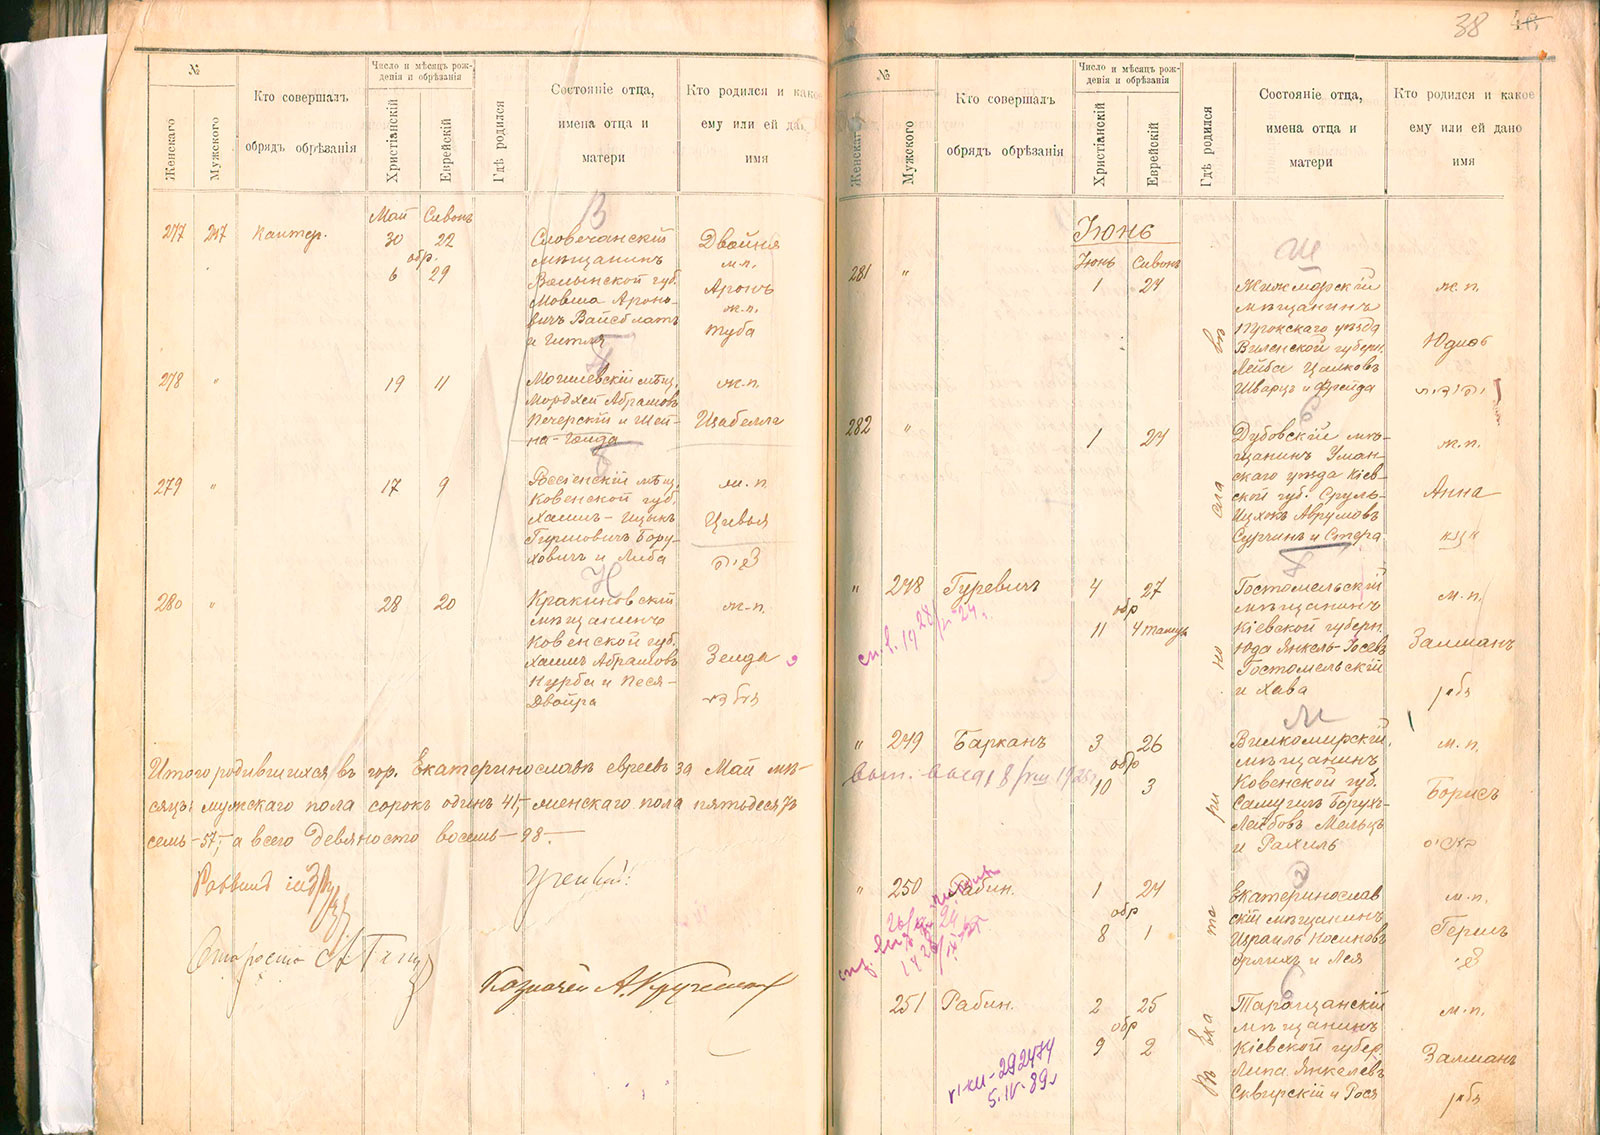 №
Женскаго
Мужского
Кто совершалъ
обрядъ обрѣзанія
Число и мѣсяцъ рож-
денія и обрѣзанія
Христіанскій
Еврейскій
Гдѣ родился
Состояніе отца,
имена отца и
матери
Кто родился и како
ему или ей да
имя
Май Сивонъ
277 247 Кантор.
30 22
обр.
6 29
Словечанскій
мѣщанинъ
Волынской губ.
Мовша Ароно-
вичъ Вайсблатъ
и Гитля
Двойня
м.п.
Аронъ
ж.п.
Туба
278 " 19 11
Могилевскій мѣщ.
Мордхей Абрамовъ
Печерскій и Шей-
на-Голда
ж.п.
Изабелла
279 " 17 9
Россіенскій мѣщ.
Ковенской губ.
Хаимъ-Ицыкъ
Гиршовичъ Бору-
ховичъ и Либа
ж.п.
Цивья
280 " 28 20
Кракиновскій
мѣщанинъ
Ковенской губ.
Хаимъ Абрамовъ
Нурба и Песя-
Двойра
ж.п.
Зелда
Итого родившихся въ гор. Екатеринославѣ евреевъ за Май мѣ-
сяцъ: мужскаго пола сорокъ одинъ 41,- женскаго пола пятьдесятъ
семь-57,- а всего девяносто восемь-98.-
Раввинъ
Староста
Казначей А.
38
№
Женскаго
Мужского
Кто совершалъ
обрядъ обрѣзанія
Число и мѣсяцъ рож-
денія и обрѣзанія
Христіанскій
Еврейскій
Гдѣ родился
Состояніе отца,
имена отца и
матери
Кто родился и какое
ему или ей дано
имя
Іюнь
Іюнь Сивонъ
281 " 1 24
Жижморскій
мѣщанинъ
Трокскаго уѣзда
Виленской губерн.
Лейба Цалковъ
Шварцъ и Фрейда
ж.п.
Юдивь
יהודית
282 " 1 24
Дубовскій мѣ-
щанинъ Уман-
скаго уѣзда Кіев-
ской губ. Сруль-
Ицхокъ Аврумовъ
Сурчинъ и Стера
ж.п.
Анна
" 248 Гуревичъ
4 27
обр
11 4 тамуз
Гостомельскій
мѣщанинъ
Кіевской губерн.
Юда Янкель-Іосевъ
Гостомельскій
и Хава
м.п.
Залманъ
" 249 Барканъ
3 26
обр
10 3
Вилкомирскій
мѣщанинъ
Ковенской губ.
Самуилъ Борухъ-
Лейбовъ Мельцъ
и Рахиль
м.п.
Борисъ
" 250 Рабин.
1 24
обр
8 1
Екатеринослав
скій мѣщанинъ
Израиль Носиновъ
Эрлихъ и Лея
м.п.
Гершъ
251 Рабин.
2 25
обр
9 2
Таращанскій
мѣщанинъ
Кіевской губер.
Липа Янкелевъ
Сквирскій и Рося
м.п.
Залманъ
въ Екатеринославѣ
292474
5.IV-89г